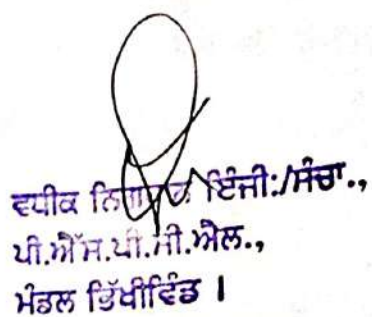 ਵਧੀਕ ਨਿਗਰਾਨ ਇੰਜੀ:/ਸੰਚਾ.,
ਪੀ.ਐੱਸ.ਪੀ.ਸੀ.ਐਲ.,
ਮੰਡਲ ਭਿੱਖੀਵਿੰਡ ।